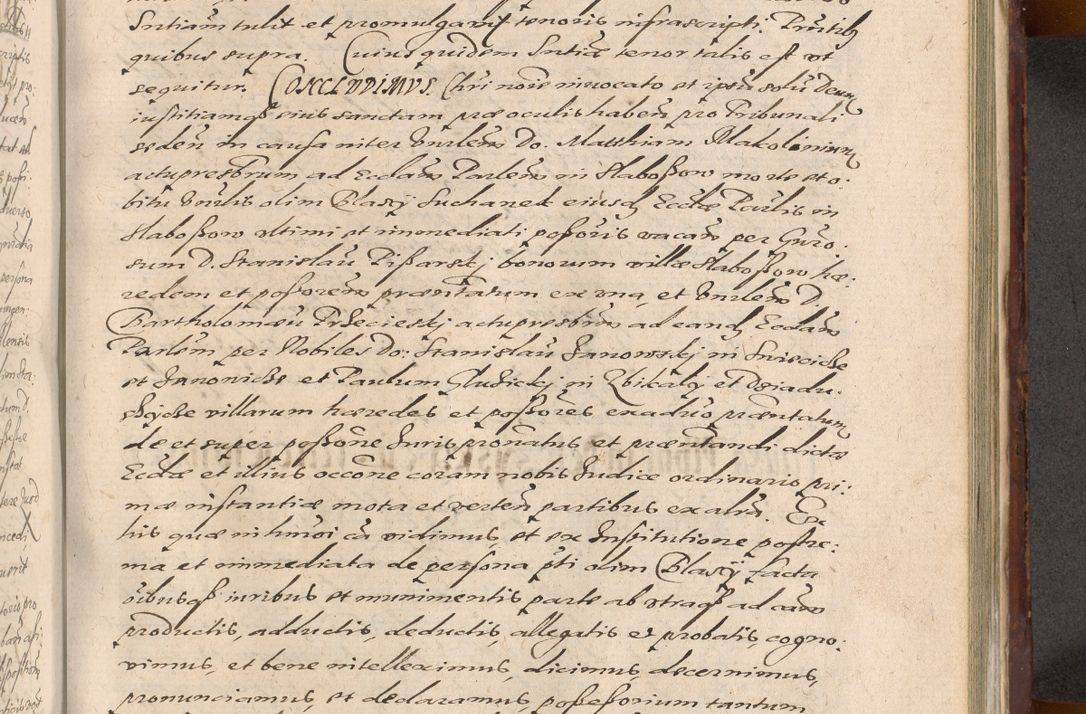 Sntiam tulit et promulgavit tenoris infrascripti. Prntib
quibus supra. Cuius quidem Sntiæ tenor talis est ut
sequitur. CONCLUDIMUS. Chri noie invocato et ipsu solu Deum
iustitiamqȝ eius sanctam præ oculis haben pro Tribunali
seden in causa inter Vnrlem Do. Matthiam Makolinium
actupresbrum ad Ecclam Parlem in Slaboszow morte et o:
bitu Vnrlis olim Blasij Suchanek eiusd Ecclæ Parlis in
Slaboszow ultimi et immediati poss̃oris vacan per Gnro:
sum D. Stanislau Pisarskj bonorum villæ Slaboszow hæ:
redem et poss̃orem præntatum ex una, et Vnrlem D.
Bartholomæu Przecieskj actupresbrm ad eand Ecclam
Parlem per Nobiles Do: Stanislau Janowskj in Sniecicze
et Janoniche et Paulum Gluzickj in Zbikaly et Dziadu:
szycze villarum hæredes et poss̃ores exaduo præntatum
de et super poss̃one Juris pronatus et præntandi dictæ
Ecclæ et illius occone coram nobis Judice ordinario pri:
mæ instantiæ mota et verten partibus ex altra. Ex
his quæ in hmoi ca vidimus, et ex Institutione postre:
ma et immediata de persona pti olim Blasij facta
oibusqȝ iuribus et munimentis parte ab utraqȝ ad cam
productis, adductis, deductis, allegatis et probatis, cogno:
vimus, et bene intelleximus, dicimus, decernimus,
pronunciamus, et declaramus, possessorium tantum